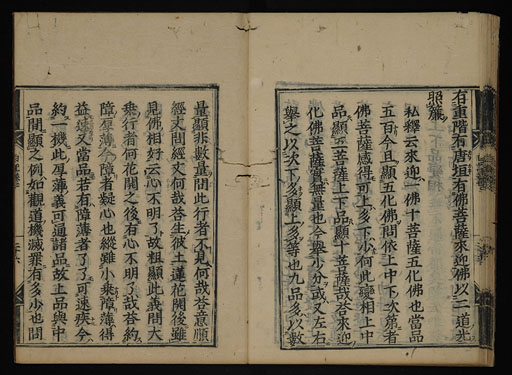 右重階有唐垣有佛菩薩來迎佛以二道光
照
私釋云來迎一佛十菩薩五化佛也當品
五百今且顯五化佛問依上中下次第者
佛菩薩感得可上多下少何此變相上中
品顯三菩薩上下品顯十菩薩哉答來迎
化佛菩薩實無量也今舉少分或又左右
舉之以次下多顯上多等也九品多以數
量顯非數量問此行者不見何哉答意願
經文問經文何哉答生彼土蓮花開後雖
見佛相好云心不明了故粗顯此義問大
乘行者何花開之後有心不明了哉答約
障厚薄今障者疑心也縱雖小乘障薄得
益速又當品若有障薄者了了可速疾今
約一機此厚薄義可通諸品故上品與中
品間顯之例如觀道機滅罪有多少也問